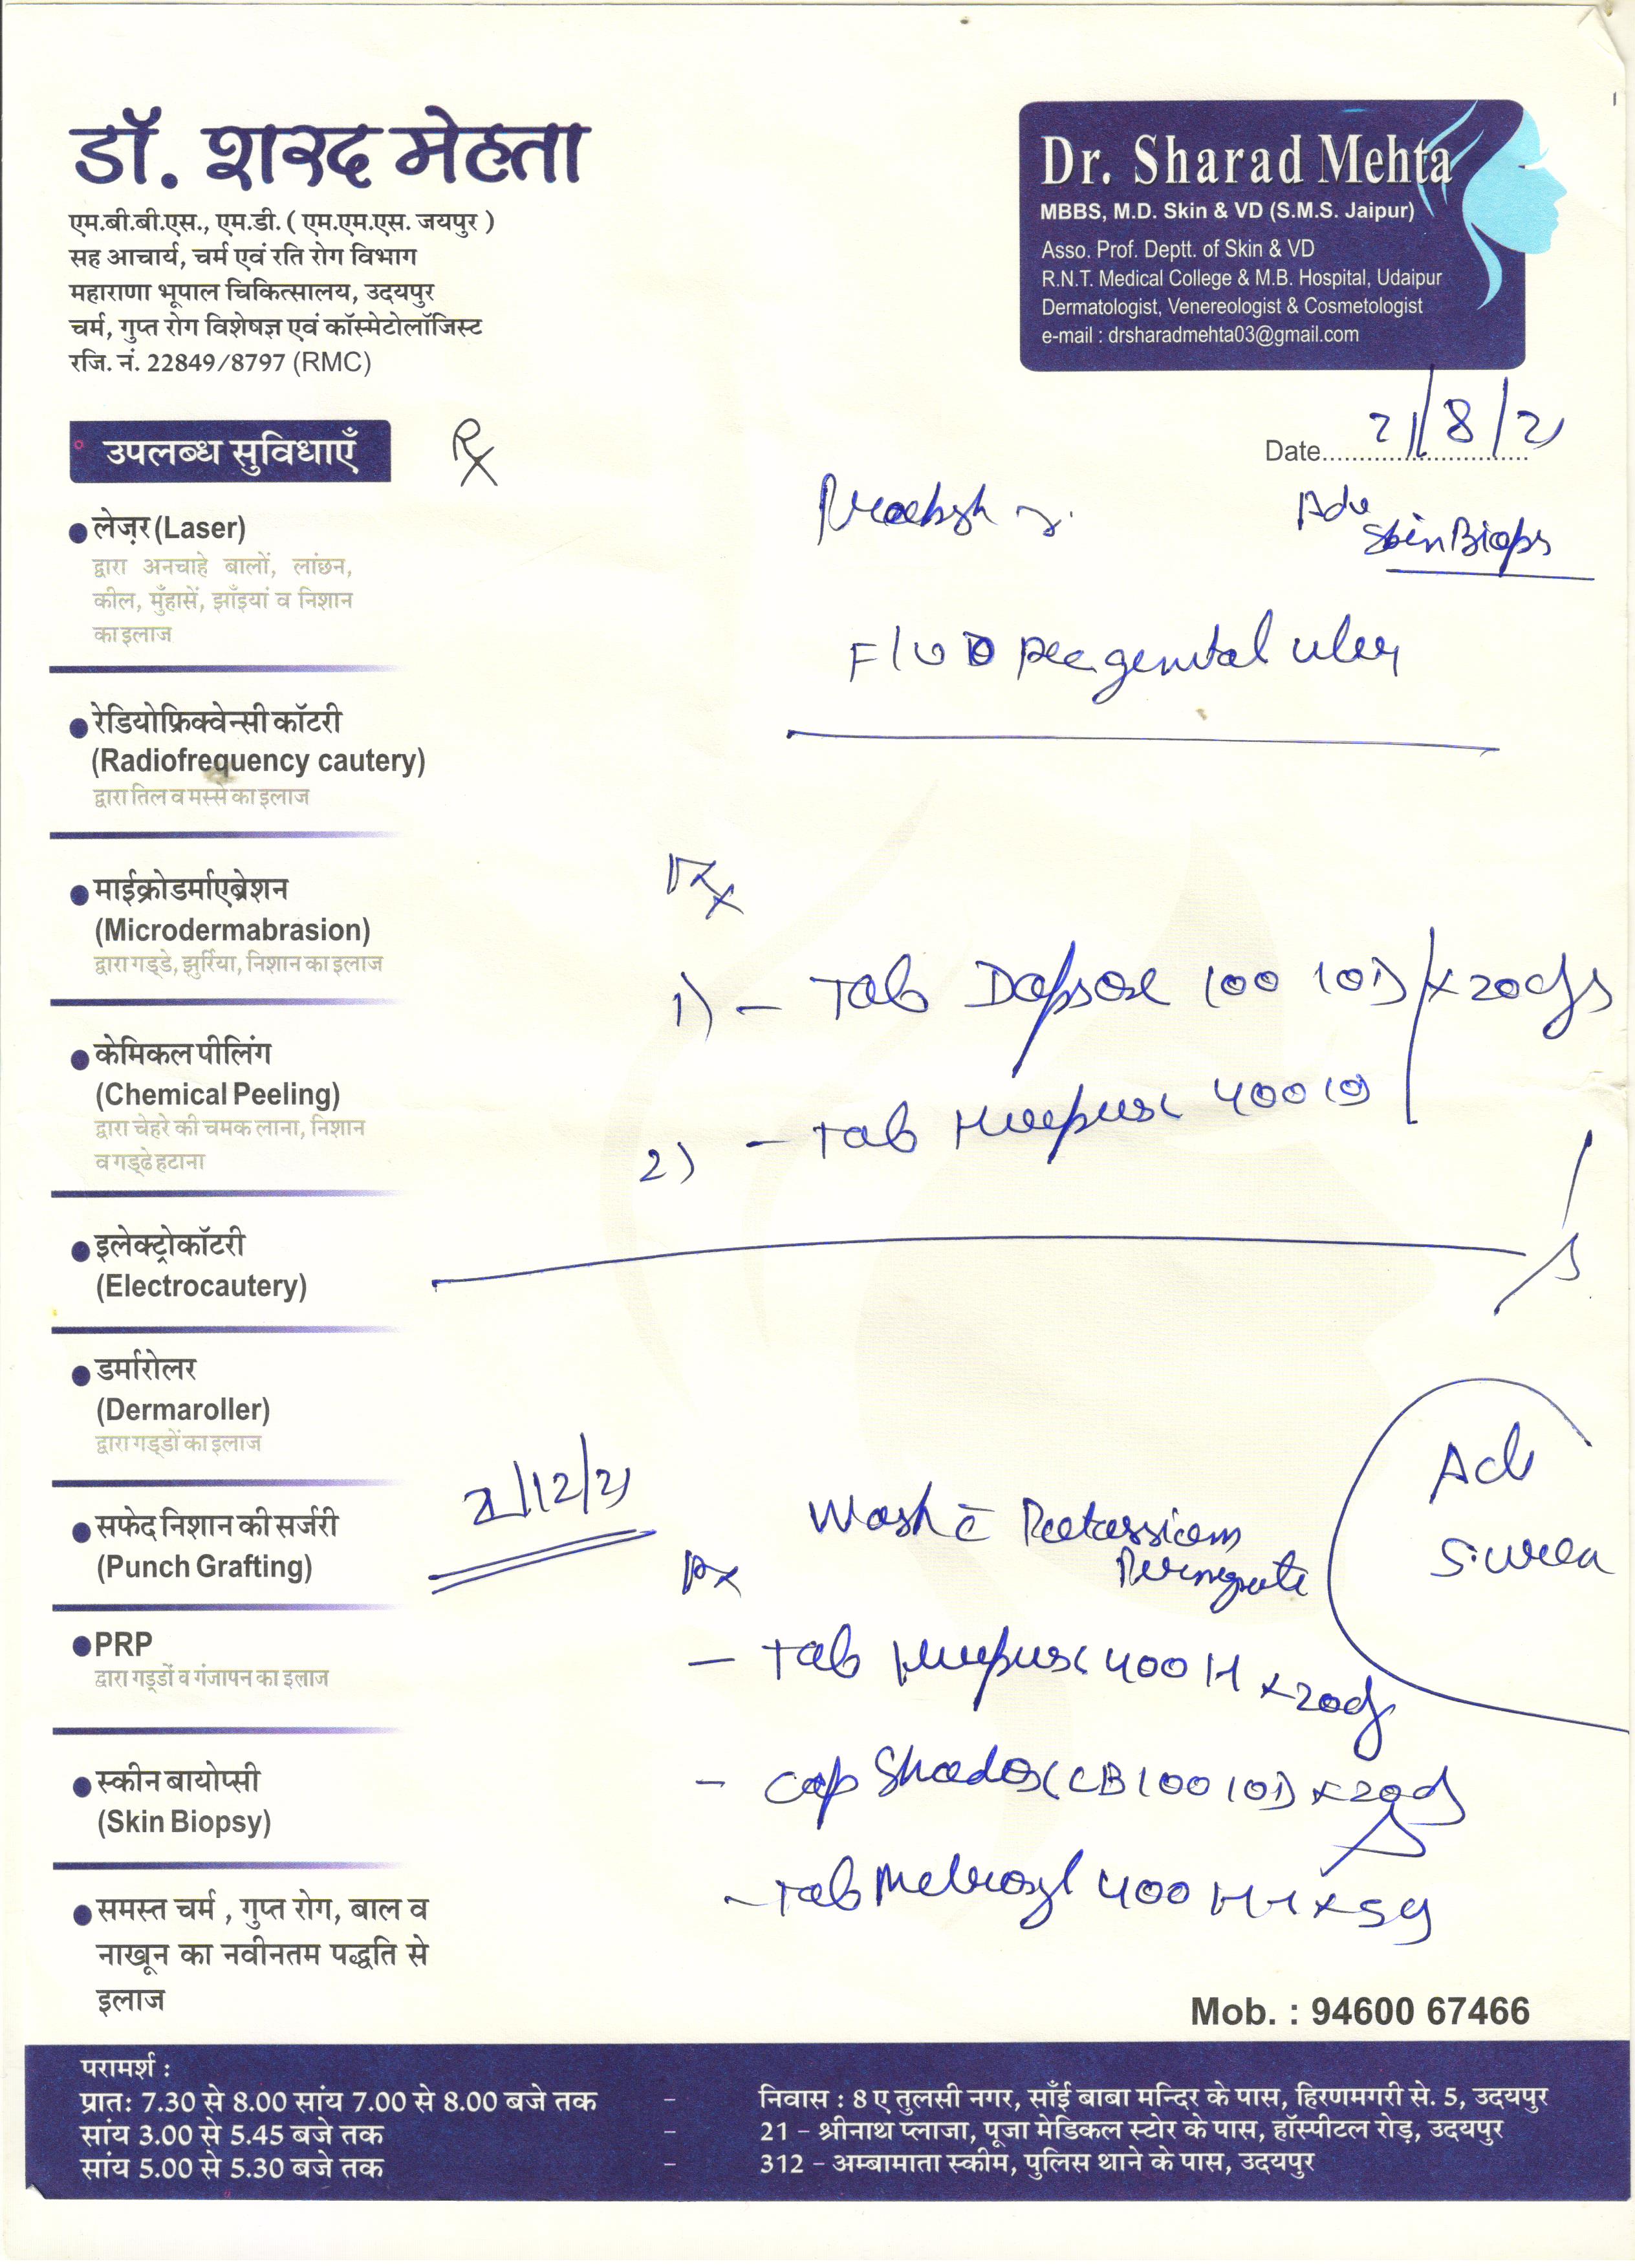 डॉ. शरद मेहता
एम.बी.बी.एस., एम.डी. ( एम.एम.एस. जयपुर )
सह आचार्य, चर्म एवं रति रोग विभाग
महाराणा भूपाल चिकित्सालय, उदयपुर
चर्म, गुप्त रोग विशेषज्ञ एवं कॉस्मेटोलॉजिस्ट
रजि. नं. 22849/8797 (RMC)
Dr. Sharad Mehta
MBBS, M.D. Skin & VD (S.M.S. Jaipur)
Asso. Prof. Deptt. of Skin & VD
R.N.T. Medical College & M.B. Hospital, Udaipur
Dermatologist, Venereologist & Cosmetologist
e-mail : drsharadmehta03@gmail.com
Date 21/8/21
Adv
Skin Biops
genital ulcer
Rx
1) - Tab Dapsone 100 1OD x 20dys
2) - Tab 400
21/12/21
Wash c̄ Potassium
Rx
- Tab 400 x 20d
- Cap 100 1OD x 20d
- Tab Metrogyl 400 x 5d
Adv
S. urea
उपलब्ध सुविधाएँ
लेज़र (Laser)
द्वारा अनचाहे बालों, लांछन,
कील, मुँहासें, झाँइयां व निशान
का इलाज
रेडियोफ्रिक्वेन्सी कॉटरी
(Radiofrequency cautery)
द्वारा तिल व मस्से का इलाज
माईक्रोडर्माएब्रेशन
(Microdermabrasion)
द्वारा गड्डे, झुर्रिया, निशान का इलाज
केमिकल पीलिंग
(Chemical Peeling)
द्वारा चेहरे की चमक लाना, निशान
व गड्ढे हटाना
इलेक्ट्रोकॉटरी
(Electrocautery)
डर्मारोलर
(Dermaroller)
द्वारा गड्डों का इलाज
सफेद निशान की सर्जरी
(Punch Grafting)
PRP
द्वारा गड्डों व गंजापन का इलाज
स्कीन बायोप्सी
(Skin Biopsy)
समस्त चर्म , गुप्त रोग, बाल व
नाखून का नवीनतम पद्धति से
इलाज
Mob. : 94600 67466
परामर्श :
प्रातः 7.30 से 8.00 सांय 7.00 से 8.00 बजे तक - निवास : 8 ए तुलसी नगर, साँई बाबा मन्दिर के पास, हिरणमगरी से. 5, उदयपुर
सांय 3.00 से 5.45 बजे तक - 21 - श्रीनाथ प्लाजा, पूजा मेडिकल स्टोर के पास, हॉस्पीटल रोड़, उदयपुर
सांय 5.00 से 5.30 बजे तक - 312 - अम्बामाता स्कीम, पुलिस थाने के पास, उदयपुर